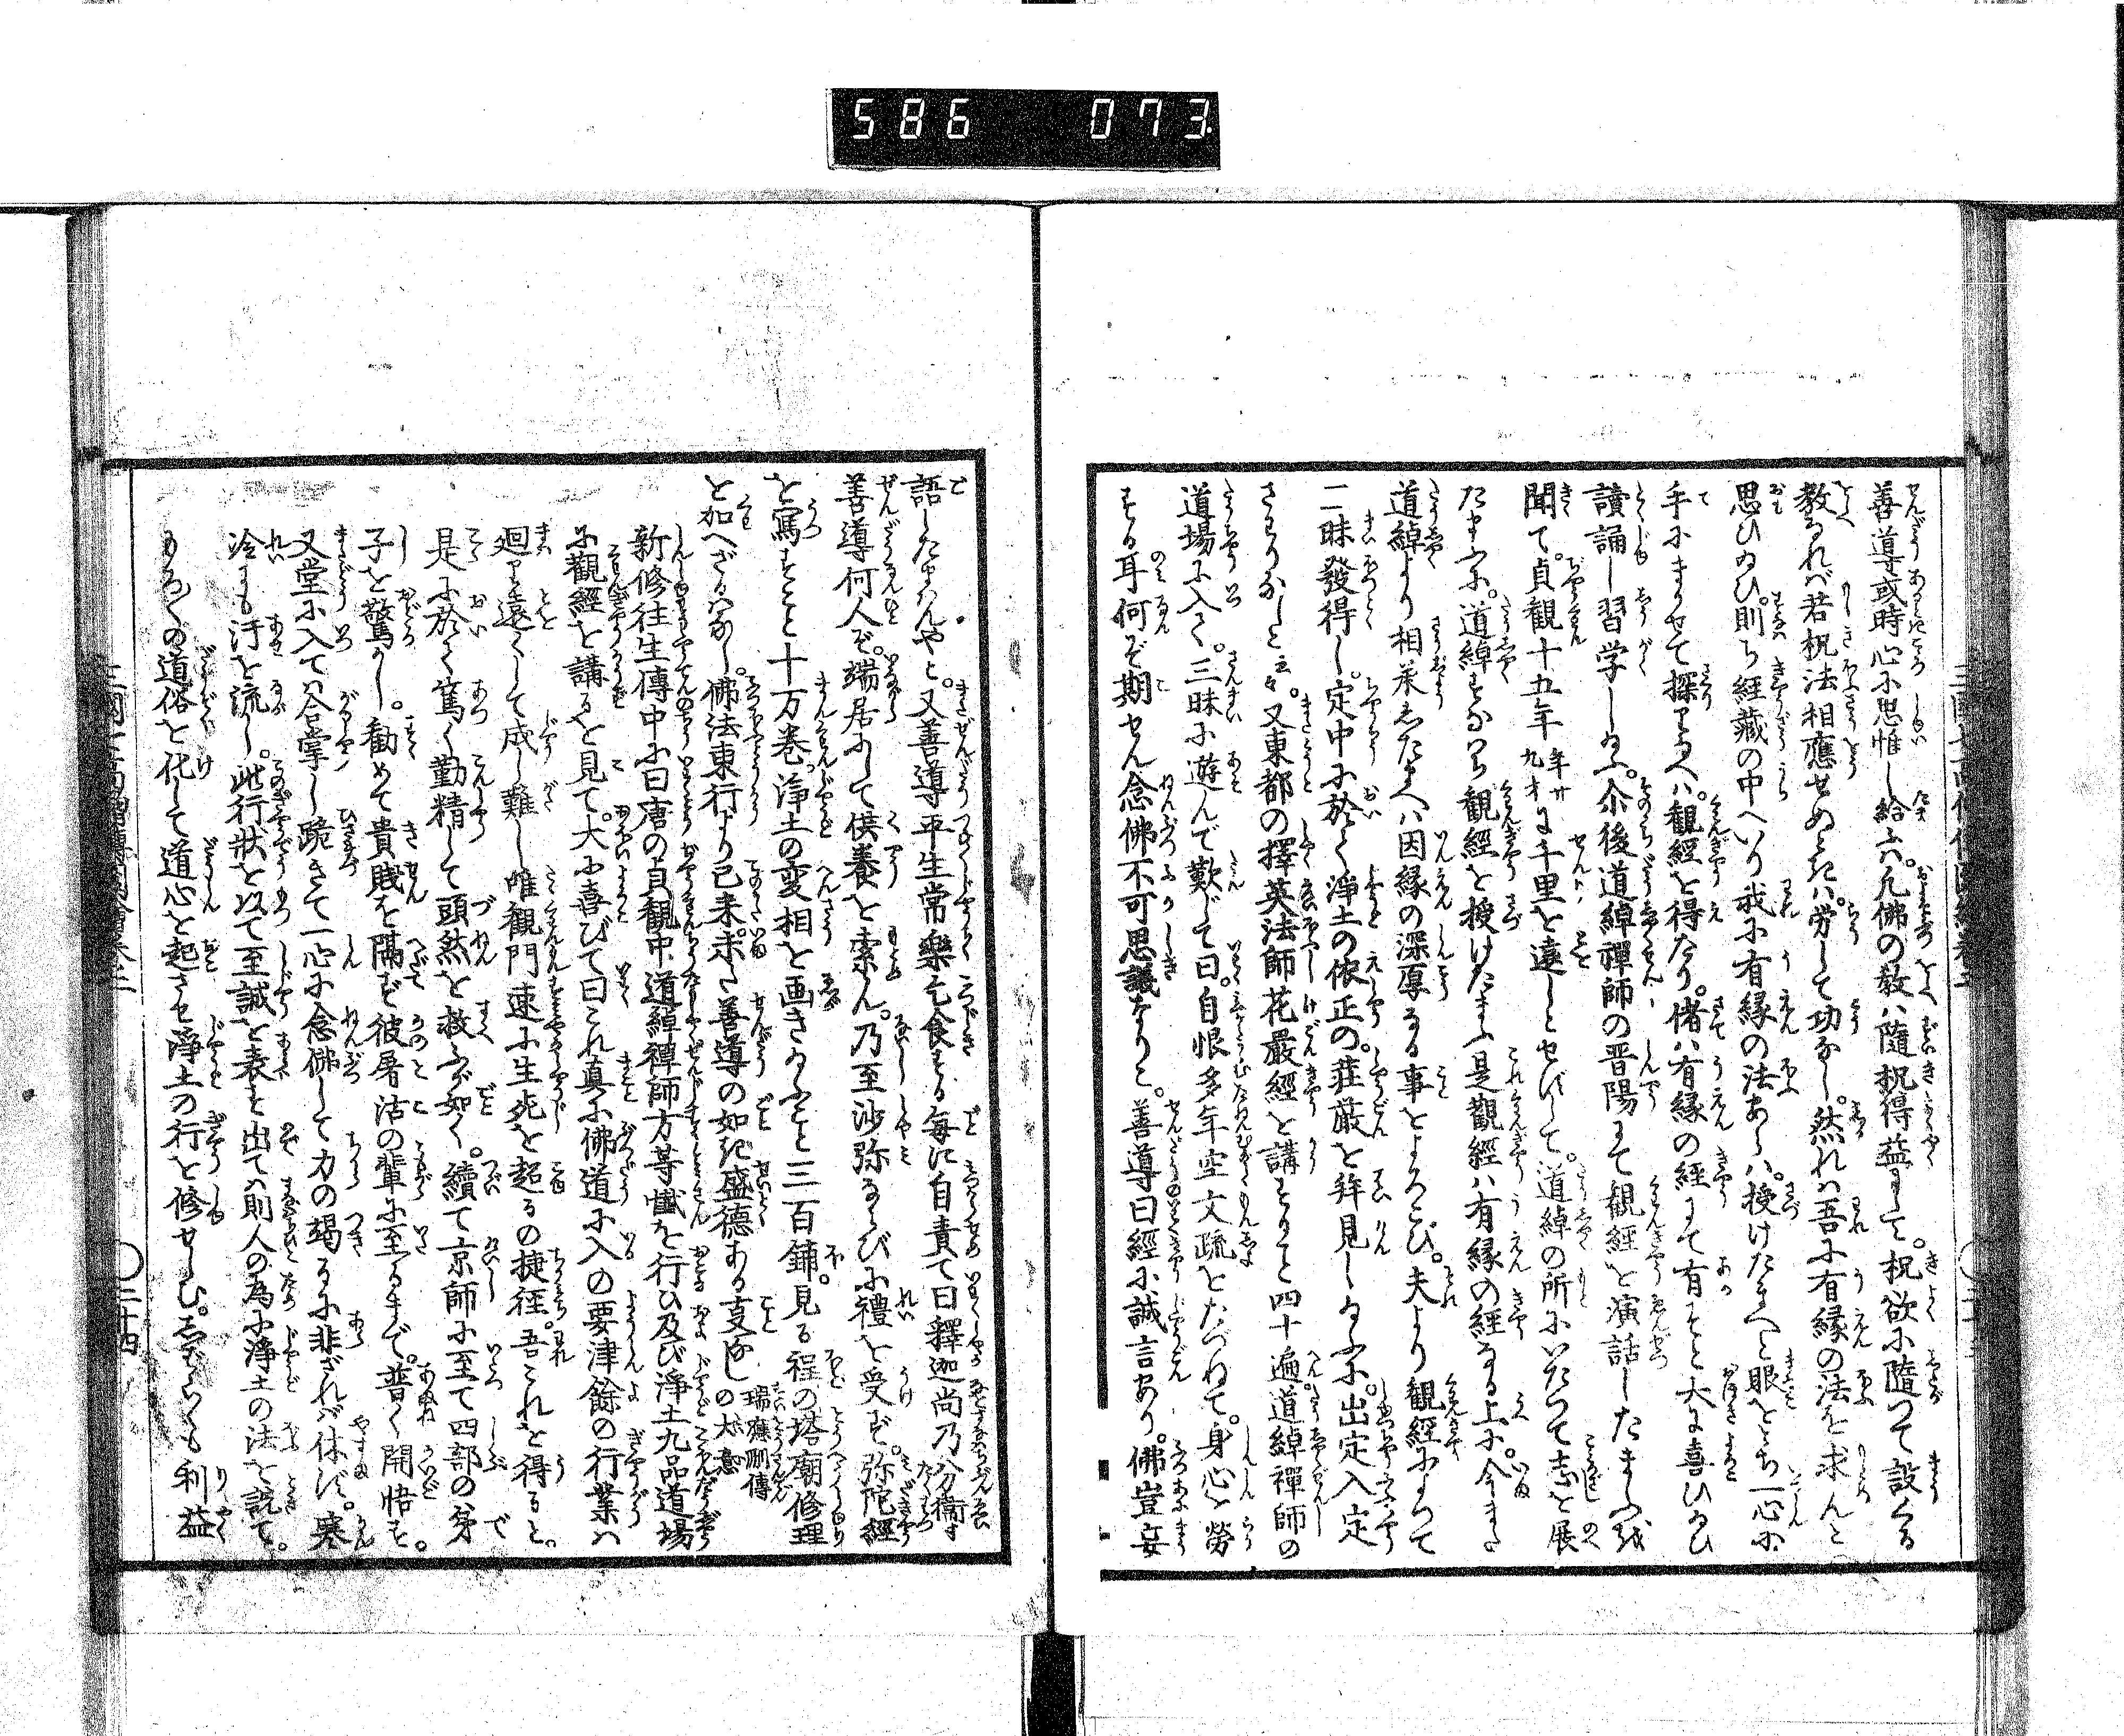 586 073
善導或時心に思惟し給ふ。凡佛の教は隨機得益にして。機欲に隨つて設くる
教なれば若機法相應せめざれは。労して功なし。然れは吾に有縁の法を求んと
思ひゐひ。則ち経蔵の中へいり我に有縁の法あらは。授けたまへと眼をとぢ一心に
手にまかせて探り給へは。觀經を得たり。偖は有縁の経にて有そと大に喜ひゐひ
讀誦し習学しゐふ。尒後道綽禪師の晋陽にて觀經を演話したまふを
聞て。貞観十五年年廿九才に千里を遠しとせずして。道綽の所にいたつて志を展
たまふに。道綽すなはち觀經を授けたまふ是觀經は有縁の経なる上に。今また
道綽より相承したまへは因縁の深厚なる事をよろこび。夫より觀經によつて
三昧發得し。定中に於て淨土の依正の。莊嚴を拜見しゐふに。出定入定
さはりなしと云々。又東都の擇英法師花嚴經を講すること四十遍道綽禪師の
道場に入て。三昧に遊んで歎じて曰。自恨多年空文疏をたづねて。身心を勞
する耳何ぞ期せん念佛不可思議なりと。善導曰經に誠言あり。佛豈妄
語したまはんやと。又善導平生常樂乞食する毎に自責て曰釋迦尚乃分衛す
善導何人ぞ。端居にして供養を索ん。乃至沙弥ならびに禮を受ず。弥陀經
を寫すこと十万卷。淨土の変相を画きゐふこと三百鋪。見る程の塔廟修理
を加へざるはなし。佛法東行より已来。未だ善導の如き盛徳ある支なし瑞應刪傳の大意
新修往生傳中に曰唐の貞觀中。道綽禪師方等懺を行ひ及び淨土九品道場
に觀經を講るを見て。大に喜びて曰これ真に佛道に入の要津餘の行業は
廻り遠くして成し難し唯観門速に生死を超るの捷徑。吾これを得ると。
是に於て篤く勤精して頭然を救ふが如く。續て京師に至て四部の弟
子を驚かし。勸めて貴賎を隔ず彼屠沽の輩に至るまで。普く開悟を。
又堂に入ては合掌し跪きて一心に念佛して力の竭るに非ざれば休ず。寒
冷にも汗を流し。此行狀を以て至誠を表を出ては則人の為に淨土の法を説て。
もろ〳〵の道俗を化して道心を起させ淨土の行を修せしむ。しばらくも利益